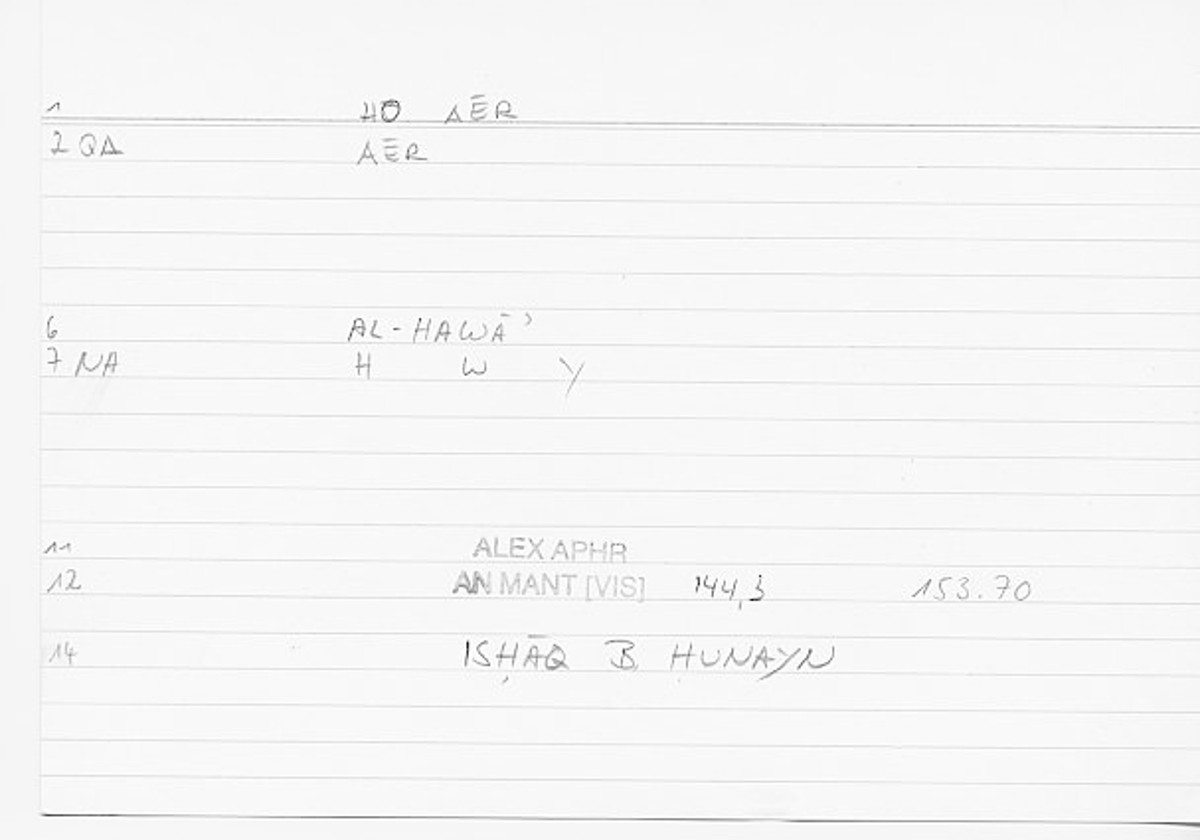 1 HO AĒR
2 QA AĒR
6 AL-HAWĀʾ
7 NA H W Y
11 ALEX APHR
12 AN MANT [VIS] 144,3 153.70
14 ISḤĀQ B ḤUNAYN